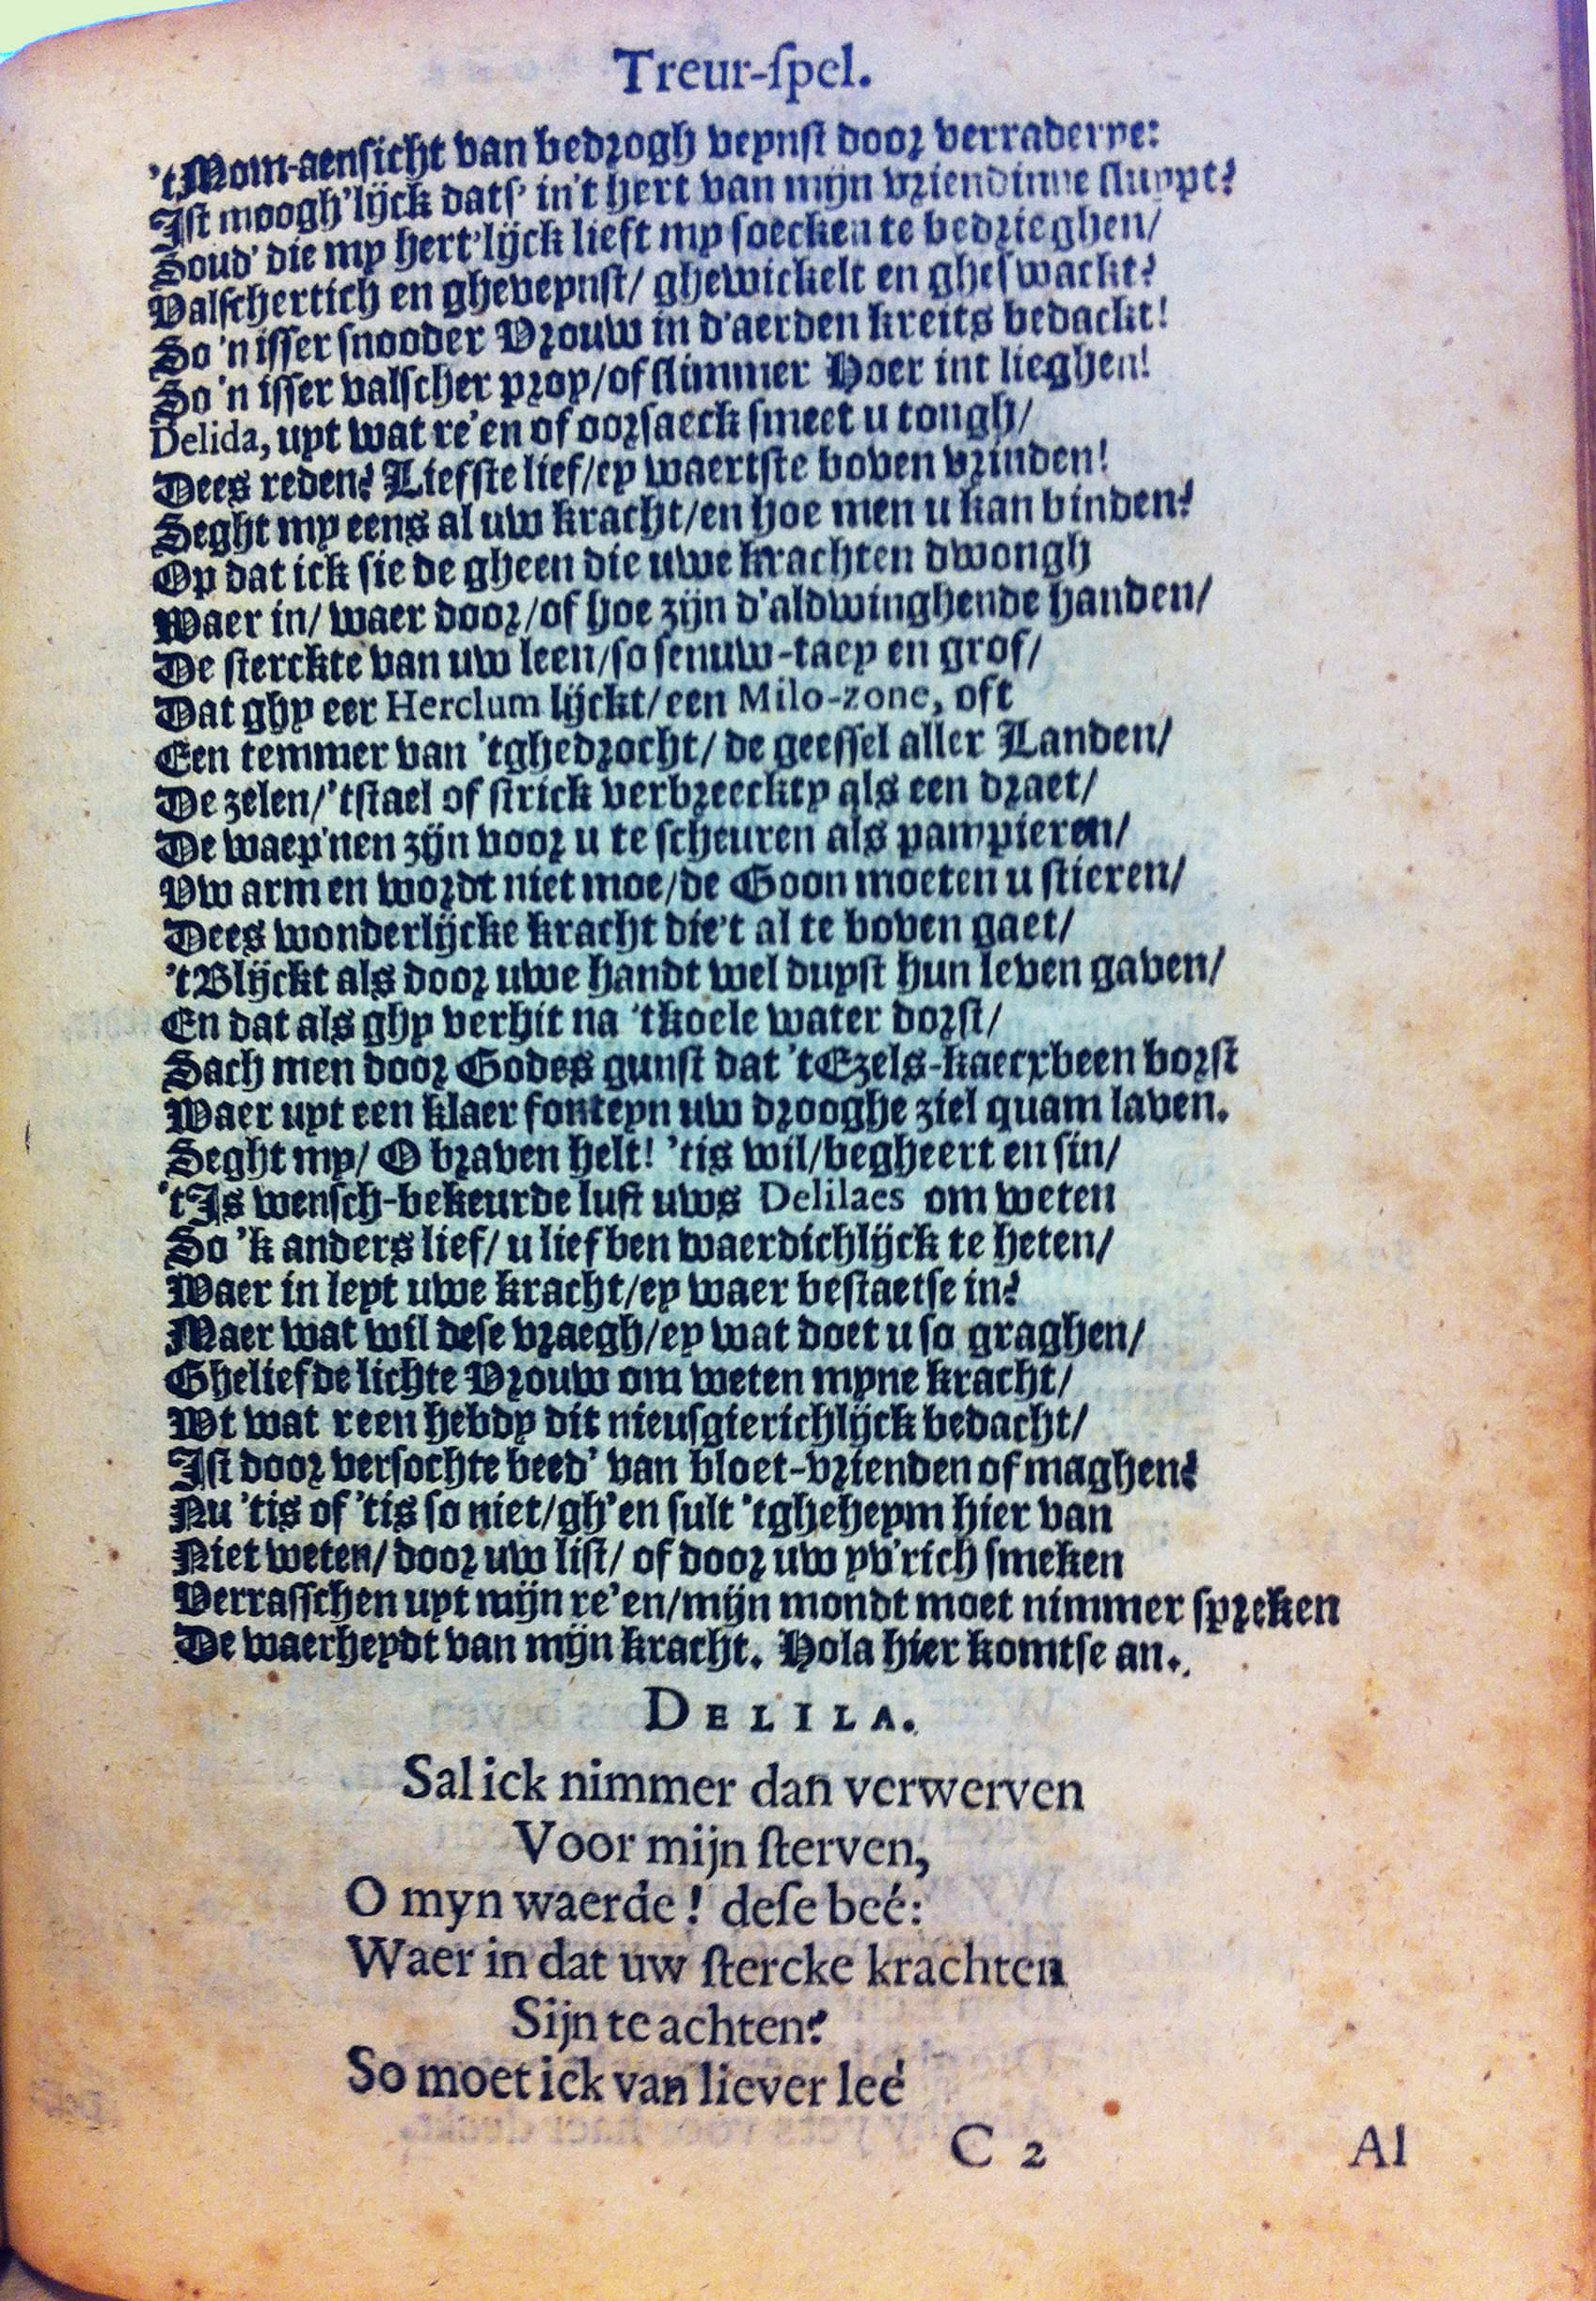 Treur-ſpel.
'tMom-aenſicht van bedrogh veynſt door verraderye:
Iſt moogh'lijck datſ' in't hert van mijn vriendinne ſluypt?
Soud' die my hert'lijck lieft my ſoecken te bedrieghen/
Valſchertich en gheveynſt/ ghewickelt en gheſwackt?
So 'n iſſer ſnooder Vrouw in d'aerden kreits bedackt!
So 'n iſſer valſcher prop/of ſlimmer Hoer int lieghen!
Delida, uyt wat re'en of oorſaeck ſmeet u tongh/
Dees reden? Liefſte lief/ey waertſte boven vrinden!
Seght my eens al uw kracht/en hoe men u kan binden?
Op dat ick ſie de gheen die uwe krachten dwongh
Waer in/ waer door/of hoe zijn d'aldwinghende handen/
De ſterckte van uw leen/ſo ſenuw-taey en grof/
Dat ghy eer Herclum lijckt/een Milo-zone, oft
Een temmer van 'tghedrocht/ de geeſſel aller Landen/
De zelen/'tſtael of ſtrick verbreeckty als een draet/
De waep'nen zijn voor u te ſcheuren als pampieren/
Vw armen wordt niet moe/de Goon moeten u ſtieren/
Dees wonderlijcke kracht die't al te boven gaet/
'tBlijckt als door uwe handt wel duyſt hun leven gaven/
En dat als ghy verhit na 'tkoele water dorſt/
Sach men door Godes gunſt dat 'tEzels-kaecxbeen borſt
Waer uyt een klaer fonteyn uw drooghe ziel quam laven.
Seght my/ O braven helt! 'tis wil/begheert en ſin/
'tIs wenſch-bekeurde luſt uws Delilaes om weten
So 'k anders lief/ u lief ben waerdichlijck te heten/
Waer in leyt uwe kracht/ey waer beſtaetſe in?
Maer wat wil deſe vraegh/ey wat doet u ſo graghen/
Gheliefde lichte Vrouw om weten myne kracht/
Wt wat reen hebdy dit nieuſgierichlijck bedacht/
Iſt door verſochte beed' van bloet-vrienden of maghen?
Nu 'tis of 'tis ſo niet/gh'en ſult 'tgheheym hier van
Niet weten/ door uw liſt/ of door uw yv'rich ſmeken
Verraſſchen uyt mijn re'en/mijn mondt moet nimmer ſpreken
De waerheydt van mijn kracht. Hola hier komtſe an.
DELILA.
Sal ick nimmer dan verwerven
Voor mijn ſterven,
O myn waerde! deſe beé:
Waer in dat uw ſtercke krachten
Sijn te achten?
So moet ick van liever leé
C 2
Al